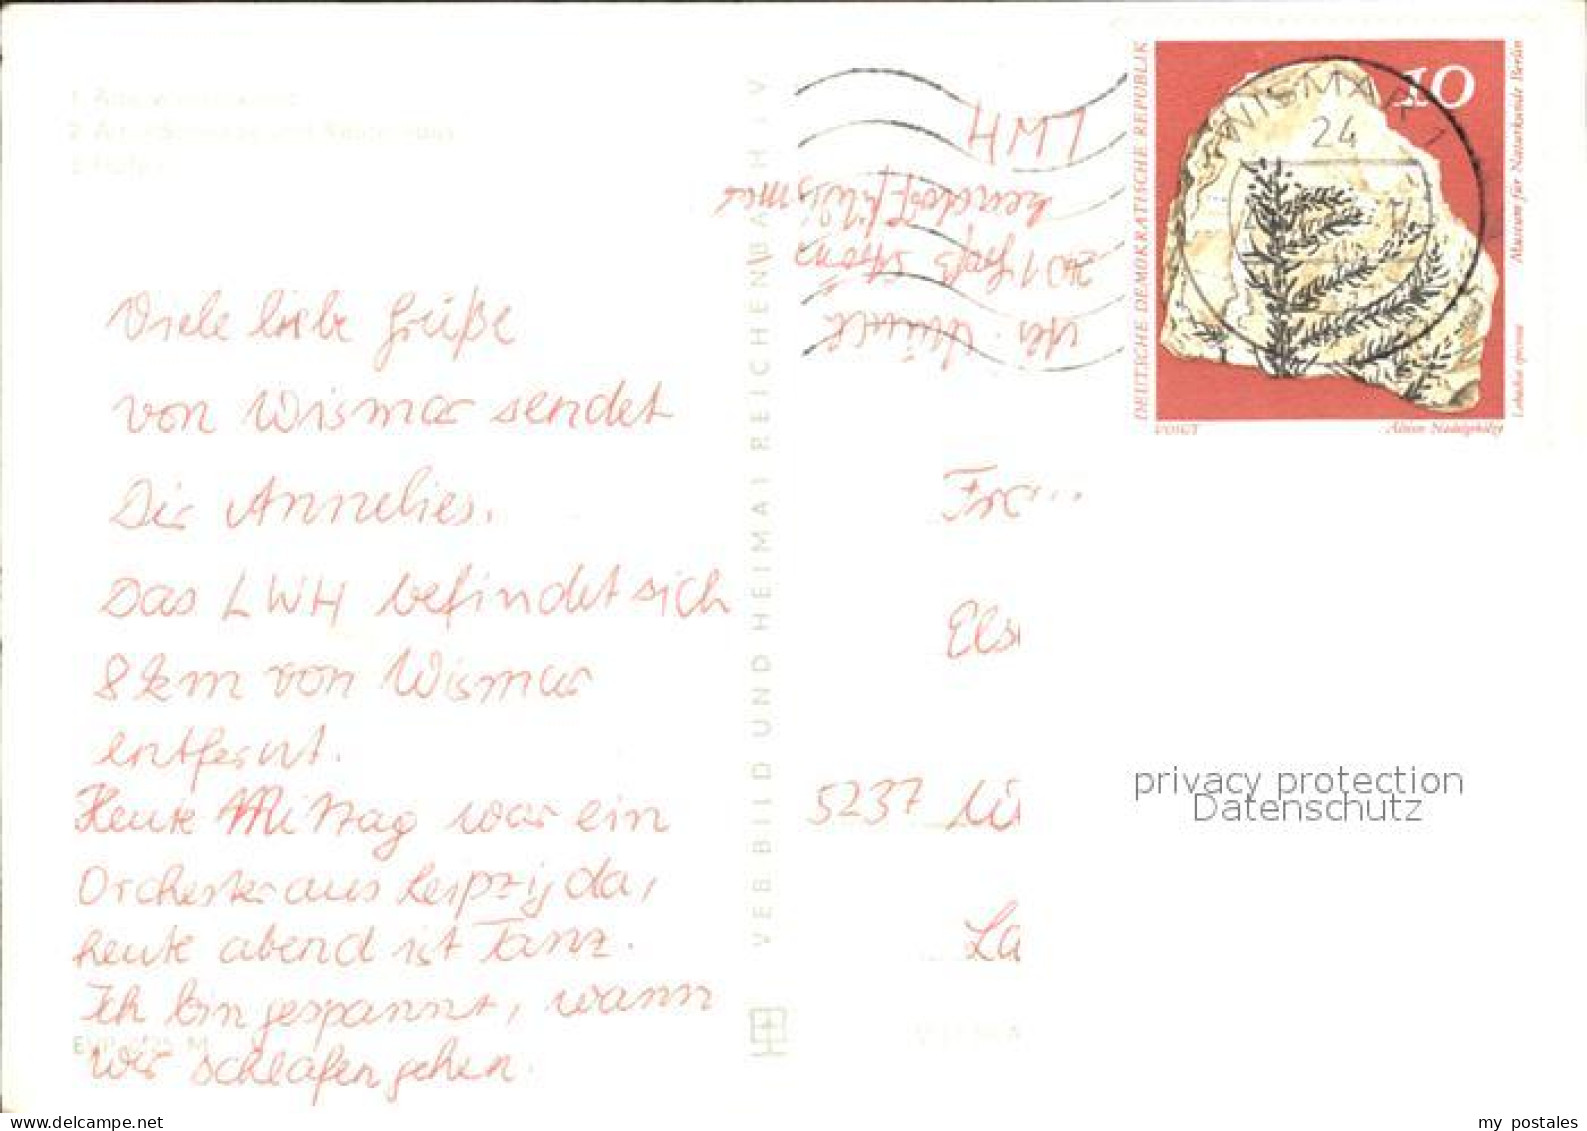 Viele liebe Grüße
von Wismar sendet
Dir Annelies.
Das LWH befindet sich
8 km von Wismar
entfernt.
Heute Mittag war ein
Orchester aus Leipzig da,
heute abend ist Tanz.
Ich bin gespannt, wann
wir schlafen gehen.
VEB BILD UND HEIMAT REICHENBACH I V
LWH
DEUTSCHE DEMOKRATISCHE REPUBLIK
10
WISMAR 1
24
Museum für Naturkunde Berlin
Lebachia speciosa
VOIGT
Älteste Nadelhölzer
5237
privacy protection
Datenschutz
my postales